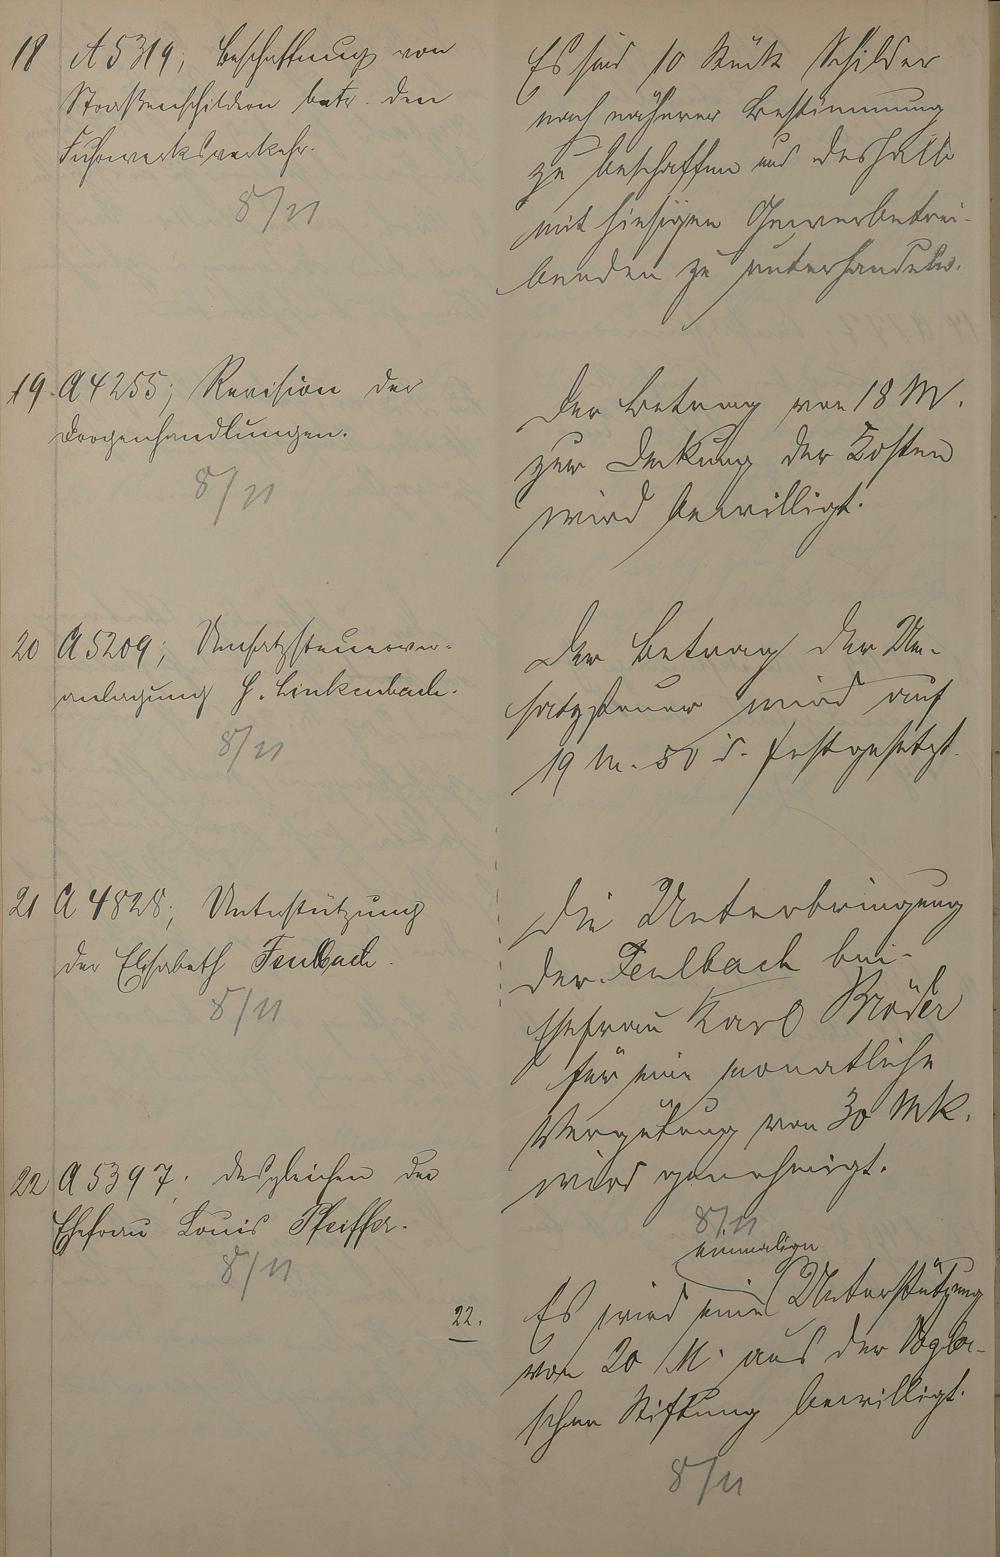 18 A 5319; Beschaffung von
Straßenschildern betr. den
Fuhrwerksverkehr.
8/11
Es sind 10 Stück Schilder
nach näherer Bestimmung
zu beschaffen und deshalb
mit hiesigen Gewerbetrei-
benden zu unterhandeln.
19. A 4255; Revision der
Drogenhandlungen.
8/11
Der Betrag von 18 M.
zur Deckung der Kosten
wird bewilligt.
20 A 5209; Umsatzsteuerver-
anlagung H. Linkenbach.
8/11
Der Betrag der Um-
satzsteuer wird auf
19 M. 50 d. festgesetzt.
21 A 4828; Unterstützung
der Elisabeth Feulbach.
8/11
Die Unterbringung
der Feulbach bei
Ehefrau Karl Bröder
für eine monatliche
Vergütung von 30 Mk.
wird genehmigt.
8/11
22 A 5397; desgleichen der
Ehefrau Louis Pfeiffer.
8/11
einmalige
22. Es wird eine Unterstützung
von 20 M. aus der
schen Stiftung bewilligt.
8/11